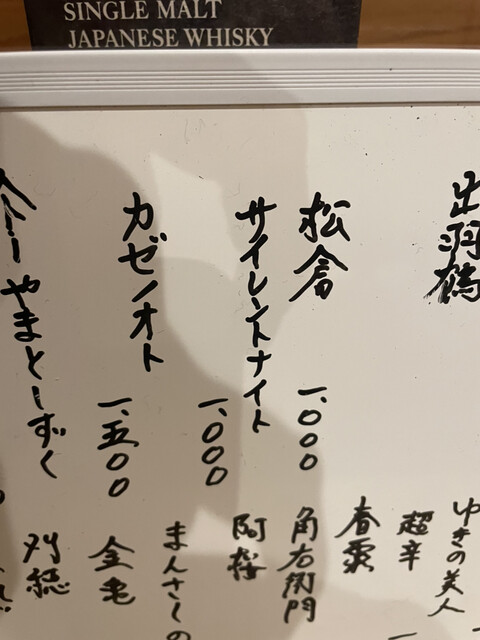 SINGLE MALT
JAPANESE WHISKY
出羽鶴
松倉
一、〇〇〇
サイレントナイト
一、〇〇〇
カゼノオト
一、五〇〇
やまとしずく
ゆきの美人
超辛
春霞
角右衛門
阿櫻
まんさくの
刈穂